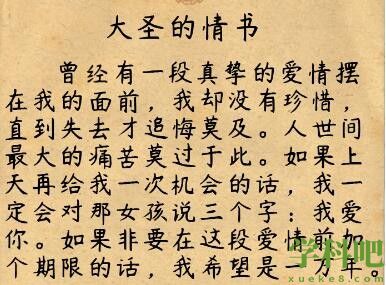 大圣的情书
曾经有一段真挚的爱情摆
在我的面前，我却没有珍惜，
直到失去才追悔莫及。人世间
最大的痛苦莫过于此。如果上
天再给我一次机会的话，我一
定会对那女孩说三个字：我爱
你。如果非要在这段爱情前加
个期限的话，我希望是一万年。
学科吧
xueke8.com